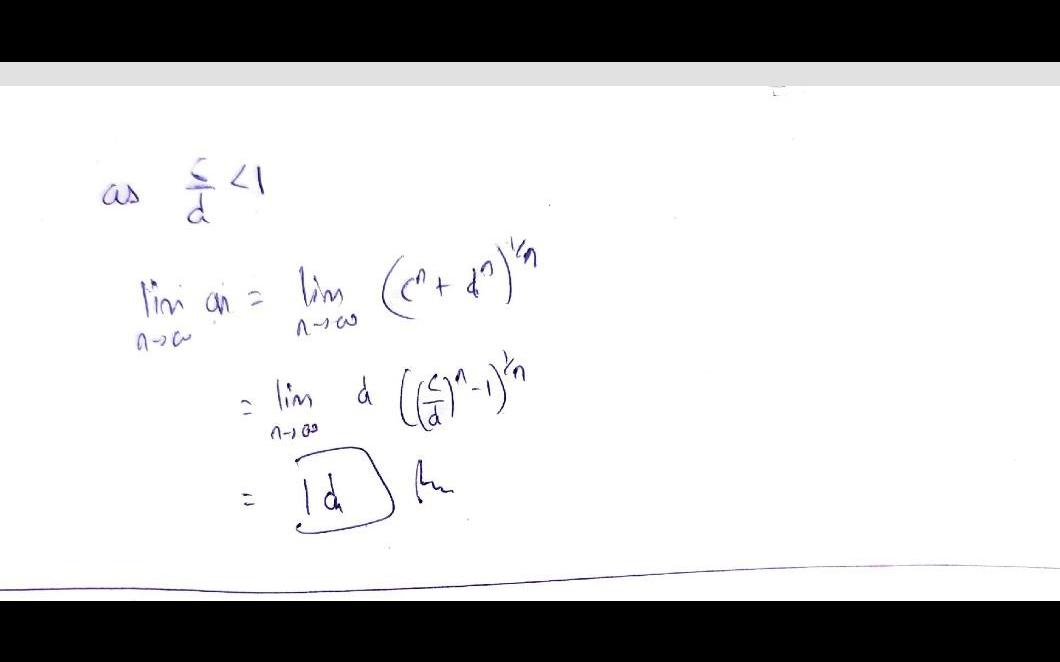 as c/d <1
lim n→∞ an = lim n→∞ (cⁿ + dⁿ)^1/n
= lim n→∞ d ((c/d)ⁿ - 1)^1/n
= d